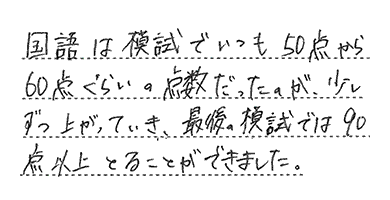 国語は模試でいつも50点から
60点ぐらいの点数だったのが、少し
ずつ上がっていき、最後の模試では90
点以上とることができました。